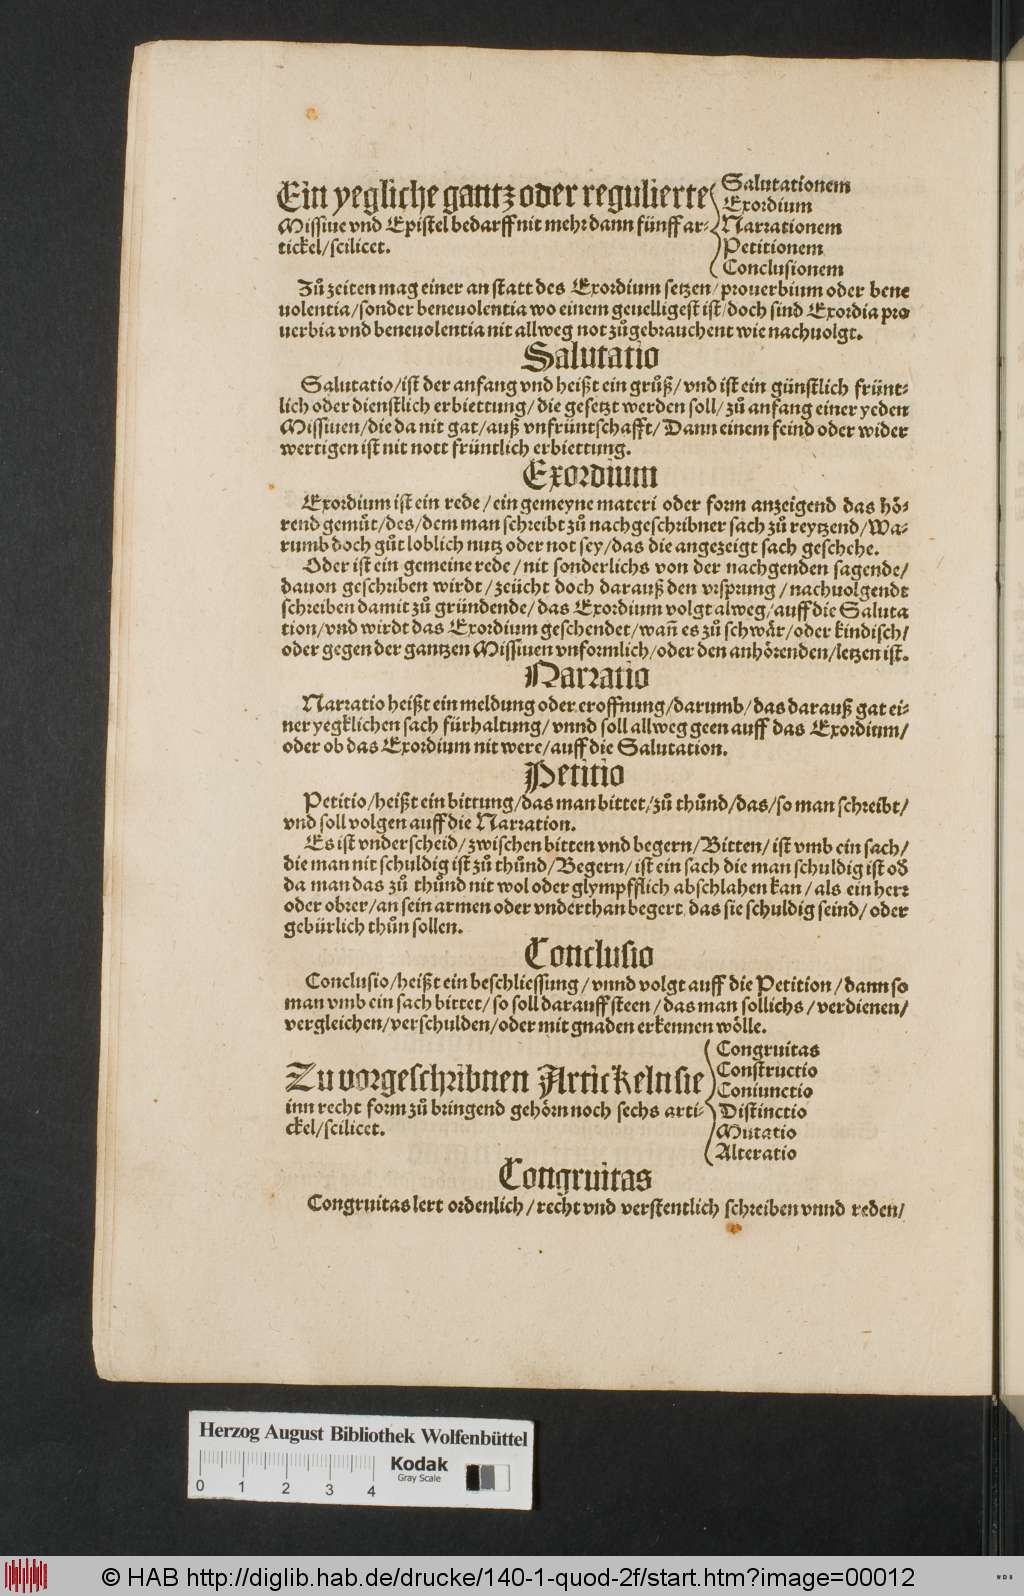 Ein yegliche gantz oder regulierte
Missiue vnd Epistel bedarff nit mehr dann fünff ar-
tickel/scilicet.
Salutationem
Exordium
Narrationem
Petitionem
Conclusionem
Zů zeiten mag einer an statt des Exordium setzen/prouerbium oder bene
uolentia/sonder beneuolentia wo einem geuelligest ist/doch sind Exordia pro
uerbia vnd beneuolentia nit allweg not zůgebrauchent wie nachuolgt.
Salutatio
Salutatio/ist der anfang vnd heißt ein grůß/vnd ist ein günstlich frünt-
lich oder dienstlich erbiettung/die gesetzt werden soll/zů anfang einer yeden
Missiuen/die da nit gat/auß vnfrüntschafft/Dann einem feind oder wider
wertigen ist nit nott früntlich erbiettung.
Exordium
Exordium ist ein rede/ein gemeyne materi oder form anzeigend das hö-
rend gemüt/des/dem man schreibt zů nachgeschribner sach zů reytzend/Wa-
rumb doch gůt loblich nutz oder not sey/das die angezeigt sach geschehe.
Oder ist ein gemeine rede/nit sonderlichs von der nachgenden sagende/
dauon geschriben wirdt/zeücht doch darauß den vrsprung/nachuolgendt
schreiben damit zů gründende/das Exordium volgt alweg/auff die Saluta
tion/vnd wirdt das Exordium geschendet/wañ es zů schwär/oder kindisch/
oder gegen der gantzen Missiuen vnformlich/oder den anhörenden/letzen ist.
Narratio
Narratio heißt ein meldung oder eroffnung/darumb/das darauß gat ei-
ner yegklichen sach fürhaltung/vnnd soll allweg geen auff das Exordium/
oder ob das Exordium nit were/auff die Salutation.
Petitio
Petitio/heißt ein bittung/das man bittet/zů thůnd/das/so man schreibt/
vnd soll volgen auff die Narration.
Es ist vnderscheid/zwischen bitten vnd begern/Bitten/ist vmb ein sach/
die man nit schuldig ist zů thůnd/Begern/ist ein sach die man schuldig ist oď
da man das zů thůnd nit wol oder glympfflich abschlahen kan/als ein herr
oder obrer/an sein armen oder vnderthan begert das sie schuldig seind/oder
gebürlich thůn sollen.
Conclusio
Conclusio/heißt ein beschliessung/vnnd volgt auff die Petition/dann so
man vmb ein sach bittet/so soll darauff steen/das man sollichs/verdienen/
vergleichen/verschulden/oder mit gnaden erkennen wölle.
Zu vorgeschribnen Artickeln sie
inn recht form zů bringend gehörn noch sechs arti-
ckel/scilicet.
Congruitas
Constructio
Coniunctio
Distinctio
Mutatio
Alteratio
Congruitas
Congruitas lert ordenlich/recht vnd verstentlich schreiben vnnd reden/
Herzog August Bibliothek Wolfenbüttel
Kodak
Gray Scale
0 1 2 3 4
© HAB http://diglib.hab.de/drucke/140-1-quod-2f/start.htm?image=00012